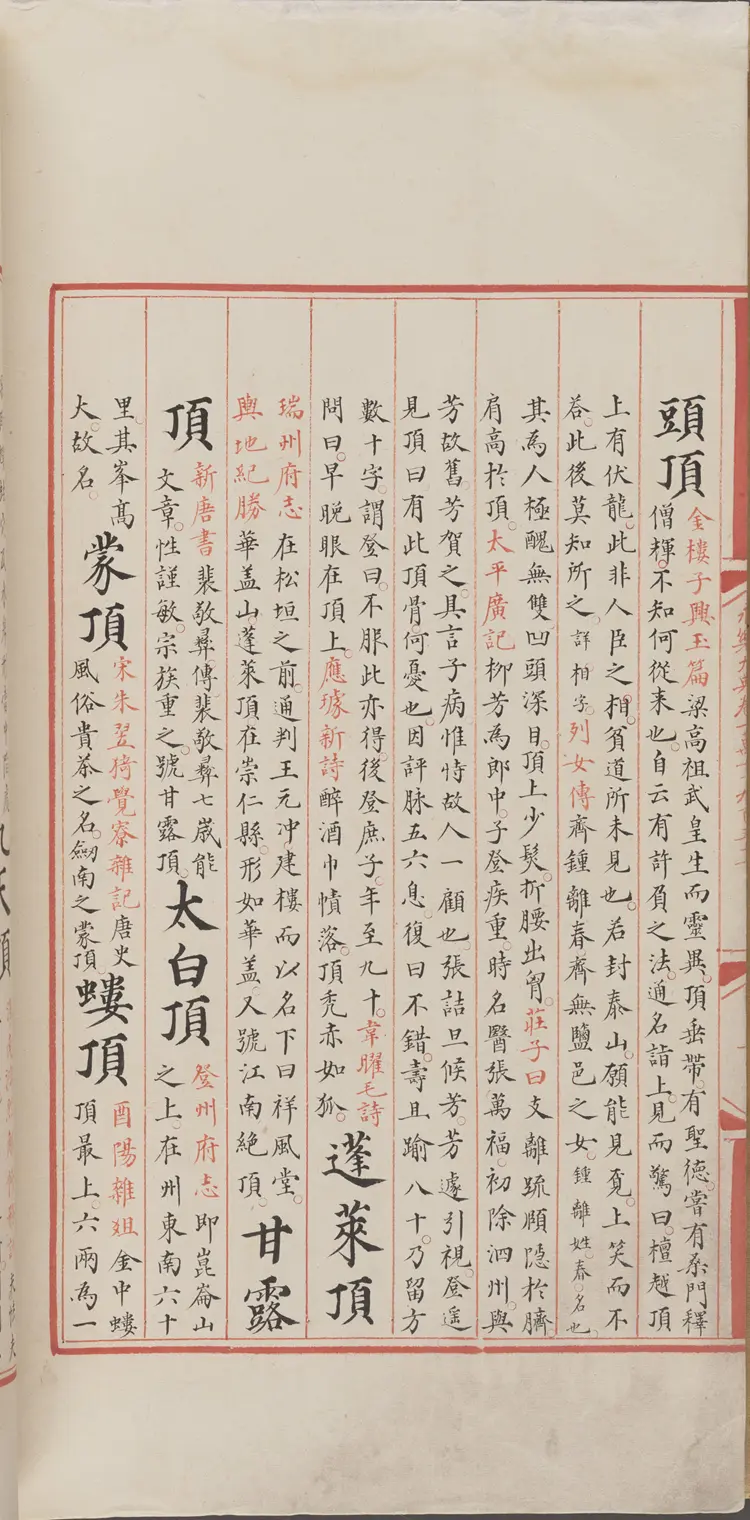 頭頂
金樓子興玉篇梁高祖武皇生而靈異。頂垂帶。有聖德。嘗有桑門釋
僧輝。不知何從来也。自云有許負之法。通名詣上。見而驚曰。檀越頂
上有伏龍。此非人臣之相。貧道所未見也。若封泰山。願能見覔。上笑而不
荅。此後莫知所之。詳相字。列女傳齊鍾離春齊無鹽邑之女。鍾離姓。春名也。
其為人極醜無雙凹頭深目。頂上少髮。折腰出胷。莊子曰支離疏頤隱於臍。
肩高於頂。太平廣記柳芳為郎中。子登疾重。時名醫張萬福。初除泗州。與
芳故舊。芳賀之。具言子病惟恃故人一顧也。張詰旦候芳。芳遽引視。登遥
見頂曰有此頂骨。何憂也。因評脉五六息。復曰不錯。壽且踰八十。乃留方
數十字。謂登曰。不服此亦得。後登庶子。年至九十。韋曜毛詩
問曰。早晚眼在頂上。應璩新詩醉酒巾幘落。頂秃赤如狐。
蓬萊頂
瑞州府志在松垣之前。通判王元冲建樓而以名下曰祥風堂。
輿地紀勝華盖山。蓬萊頂在崇仁縣。形如華盖。又號江南絶頂。
甘露
頂
新唐書裴敬彛傳裴敬彛七歲能
文章。性謹敏。宗族重之。號甘露頂。
太白頂
登州府志即崑崙山
之上。在州東南六十
里。其峯髙
大。故名。
蒙頂
宋朱翌猗覺寮雜記唐史
風俗貴茶之名。劒南之蒙頂。
螻頂
酉陽雜俎金中螻
頂最上。六兩為一